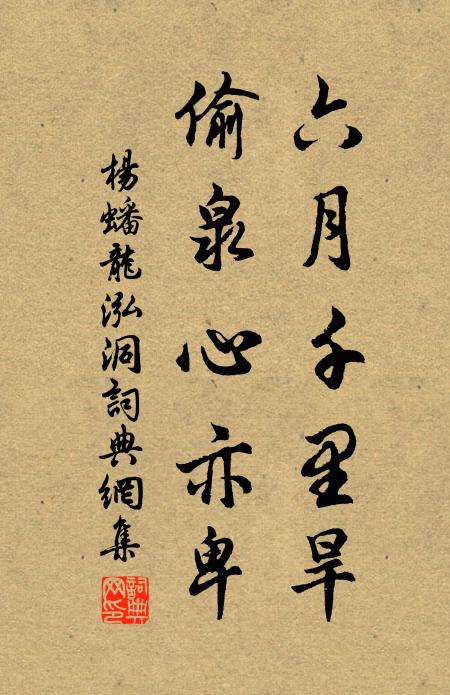 六月千里旱
偷泉心亦卑
楊蟠龍泓洞詞典網集
詞典网印